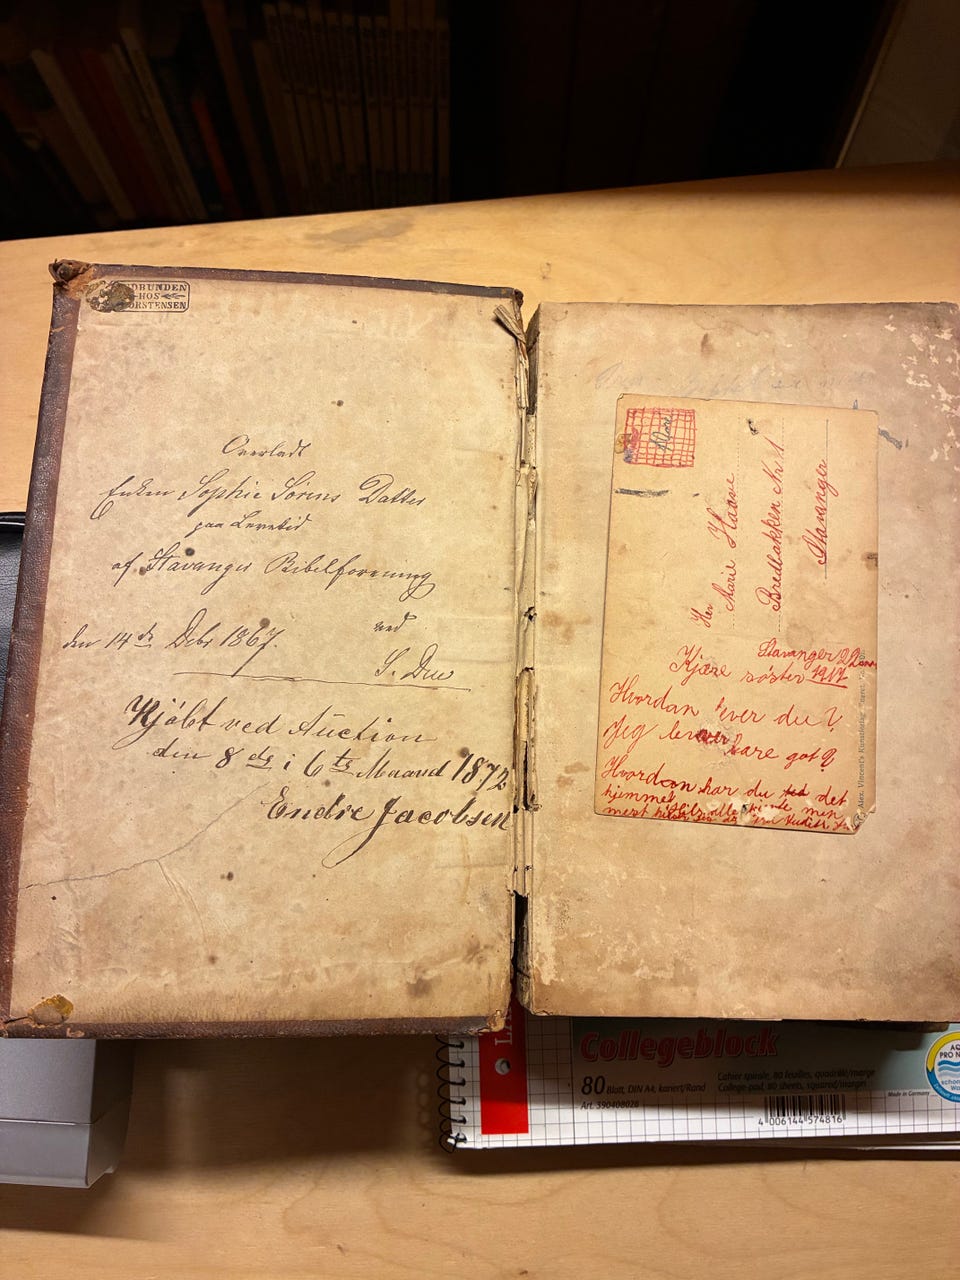 INDBUNDEN
HOS
TORSTENSEN
Overladt
Enken Sophie Sørens Datter
paa Levetid
af Stavanger Bibelforening
ved
den 14de Debr 1867.
S. Due
Kjøbt ved Auction
den 8de i 6te Maaned 1872
Endre Jacobsen
Her
Marie Haave
Bredbakken Nr 1
Stavanger
Stavanger 22
1917
Kjære søster
Hvordan lever du?
Jeg lever bare got?
Hvordan har du det
hjemmet
men
mest
Alex. Vincent's Kunstforlag
Collegeblock
80 Blatt, DIN A4, kariert/Rand
Cahier spirale, 80 feuilles, quadrillé/marge
College-pad, 80 sheets, squared/margin
Art. 390408028
Made in Germany
4 006144 574816
AQ
PRO N